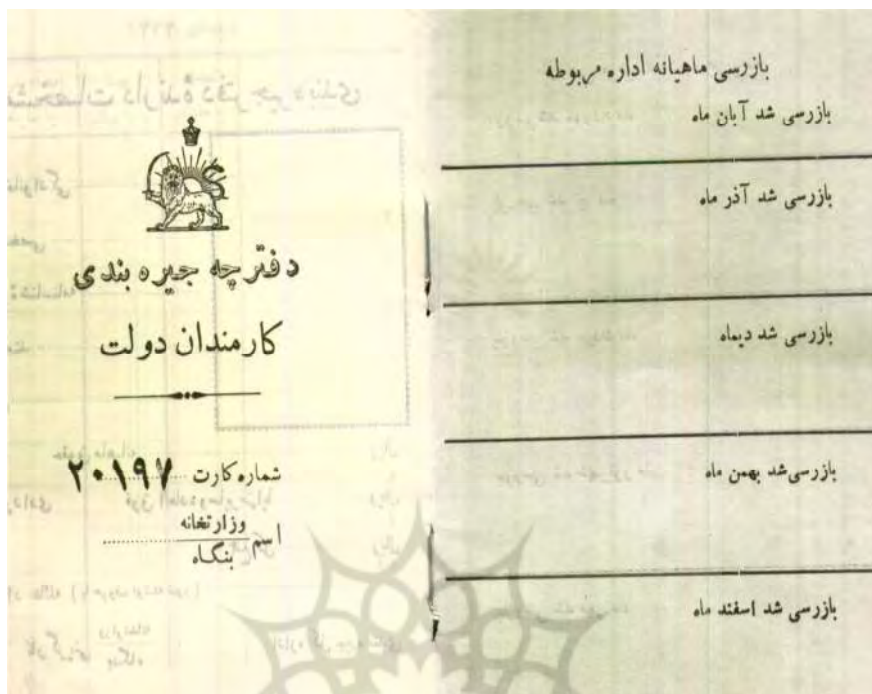 بازرسی ماهیانه اداره مربوطه
بازرسی شد آبان ماه
بازرسی شد آذر ماه
بازرسی شد دیماه
بازرسی شد بهمن ماه
بازرسی شد اسفند ماه
دفترچه جیره بندی
کارمندان دولت
شماره کارت ۲۰۱۹۷
اسم وزارتخانه
بنگاه